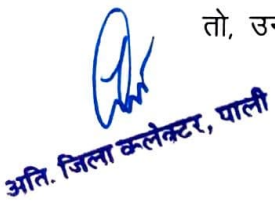 तो, उन
अति. जिला कलेक्टर, पाली